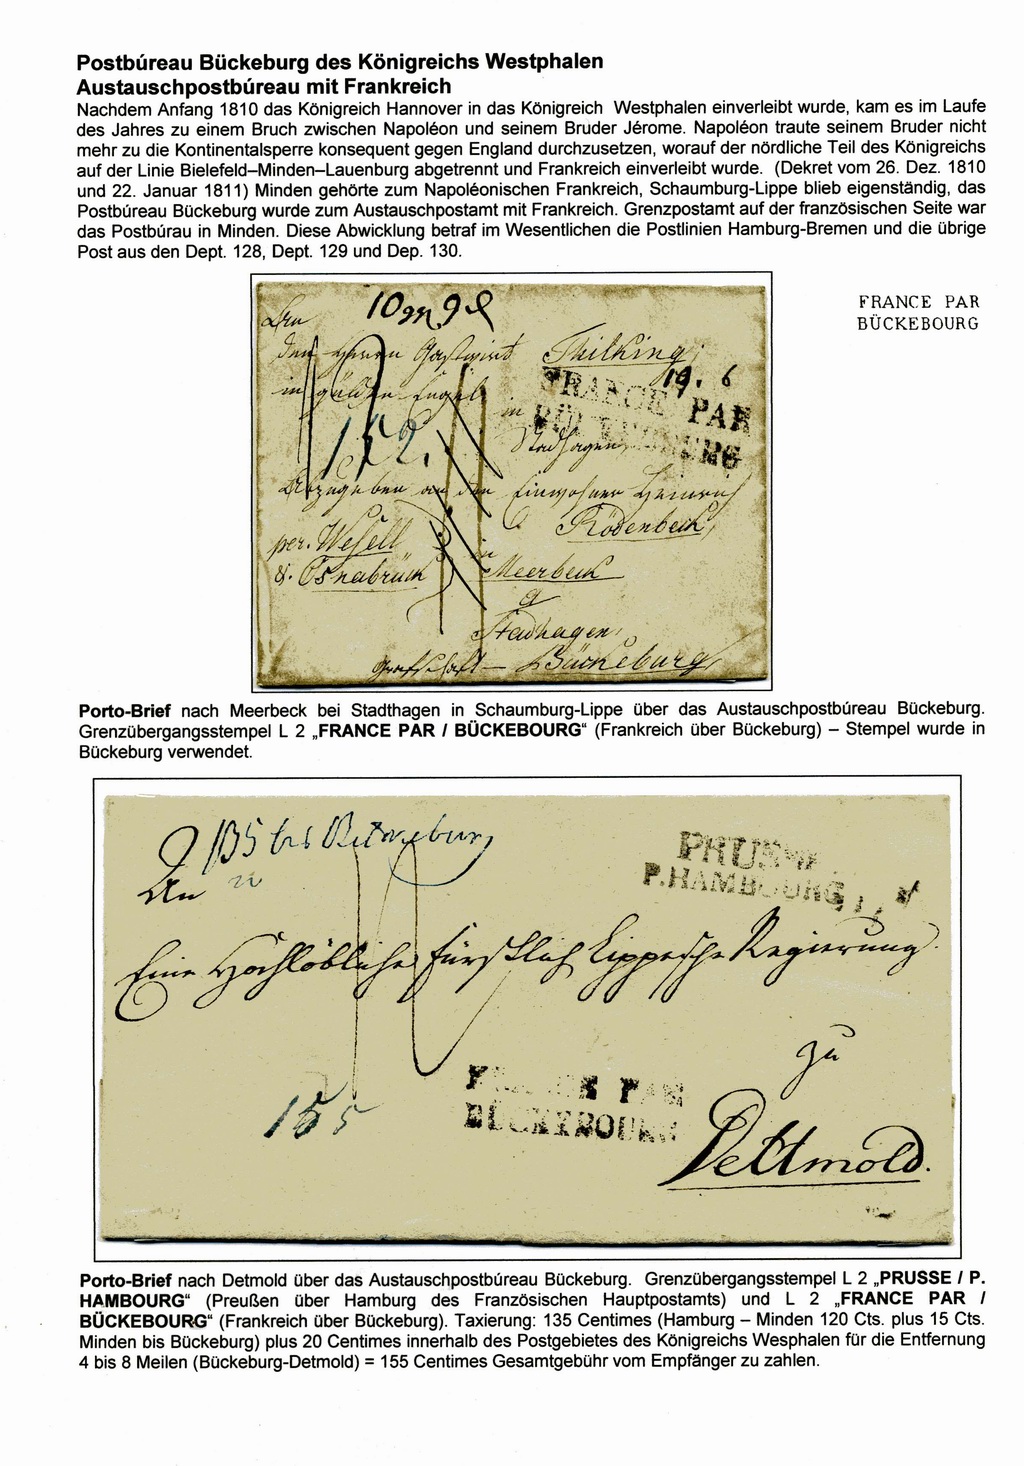 Postbúreau Bückeburg des Königreichs Westphalen
Austauschpostbúreau mit Frankreich
Nachdem Anfang 1810 das Königreich Hannover in das Königreich Westphalen einverleibt wurde, kam es im Laufe
des Jahres zu einem Bruch zwischen Napoléon und seinem Bruder Jérome. Napoléon traute seinem Bruder nicht
mehr zu die Kontinentalsperre konsequent gegen England durchzusetzen, worauf der nördliche Teil des Königreichs
auf der Linie Bielefeld–Minden–Lauenburg abgetrennt und Frankreich einverleibt wurde. (Dekret vom 26. Dez. 1810
und 22. Januar 1811) Minden gehörte zum Napoléonischen Frankreich, Schaumburg-Lippe blieb eigenständig, das
Postbúreau Bückeburg wurde zum Austauschpostamt mit Frankreich. Grenzpostamt auf der französischen Seite war
das Postbúrau in Minden. Diese Abwicklung betraf im Wesentlichen die Postlinien Hamburg-Bremen und die übrige
Post aus den Dept. 128, Dept. 129 und Dep. 130.
FRANCE PAR
BÜCKEBOURG
An
den Herrn Gastwirt Thilking
in gülden Engel
19. 6
FRANCE PAR
BÜCKEBOURG
in
Stadhagen
152.
Abzugeben an den Einwohner Heinrich
Rödenbeck
per. Wesell
&. Osnabrück
in
Meerbeck
Stadhagen
Grafschaft – Bückeburg
Porto-Brief nach Meerbeck bei Stadthagen in Schaumburg-Lippe über das Austauschpostbúreau Bückeburg.
Grenzübergangsstempel L 2 „FRANCE PAR / BÜCKEBOURG“ (Frankreich über Bückeburg) – Stempel wurde in
Bückeburg verwendet.
135 bis Bückeburg
PRUSSE
P.HAMBOURG
An
Eine Hochlöbliche Fürstlich Lippesche Regierung
zu
FRANCE PAR
BÜCKEBOURG
155
Dettmold.
Porto-Brief nach Detmold über das Austauschpostbúreau Bückeburg. Grenzübergangsstempel L 2 „PRUSSE / P.
HAMBOURG“ (Preußen über Hamburg des Französischen Hauptpostamts) und L 2 „FRANCE PAR /
BÜCKEBOURG“ (Frankreich über Bückeburg). Taxierung: 135 Centimes (Hamburg – Minden 120 Cts. plus 15 Cts.
Minden bis Bückeburg) plus 20 Centimes innerhalb des Postgebietes des Königreichs Wesphalen für die Entfernung
4 bis 8 Meilen (Bückeburg-Detmold) = 155 Centimes Gesamtgebühr vom Empfänger zu zahlen.